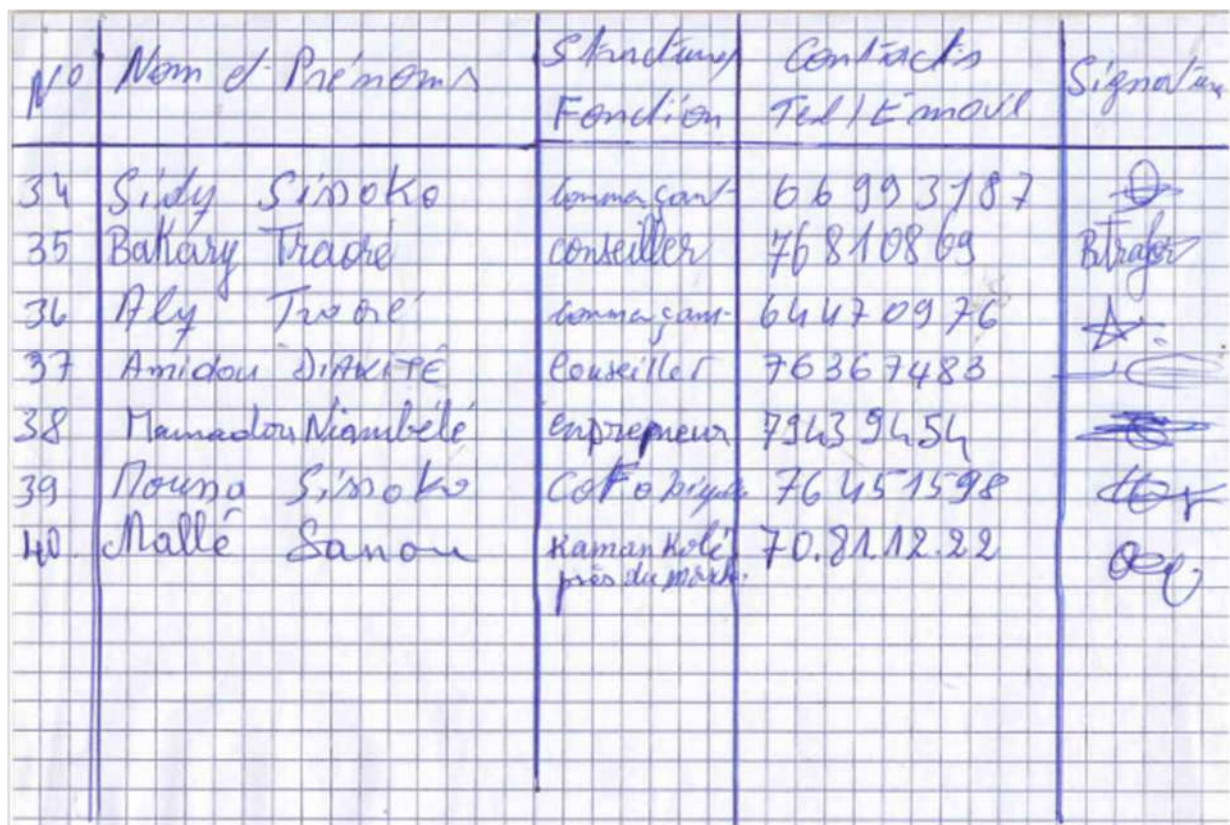 N° Nom et Prénoms Structures/ Fonction Contacts Tel / Email Signature
34 Sidy Sissoko Commerçant 66993187
35 Bakary Traoré Conseiller 76810869
36 Aly Traoré Commerçant 64470976
37 Amidou DIAKITÉ Conseiller 76367483
38 Mamadou Niambélé enprepneur 79439454
39 Moussa Sissoko 76451598
40. Mallé Sanou Kaman Kolé 70.81.12.22
près du